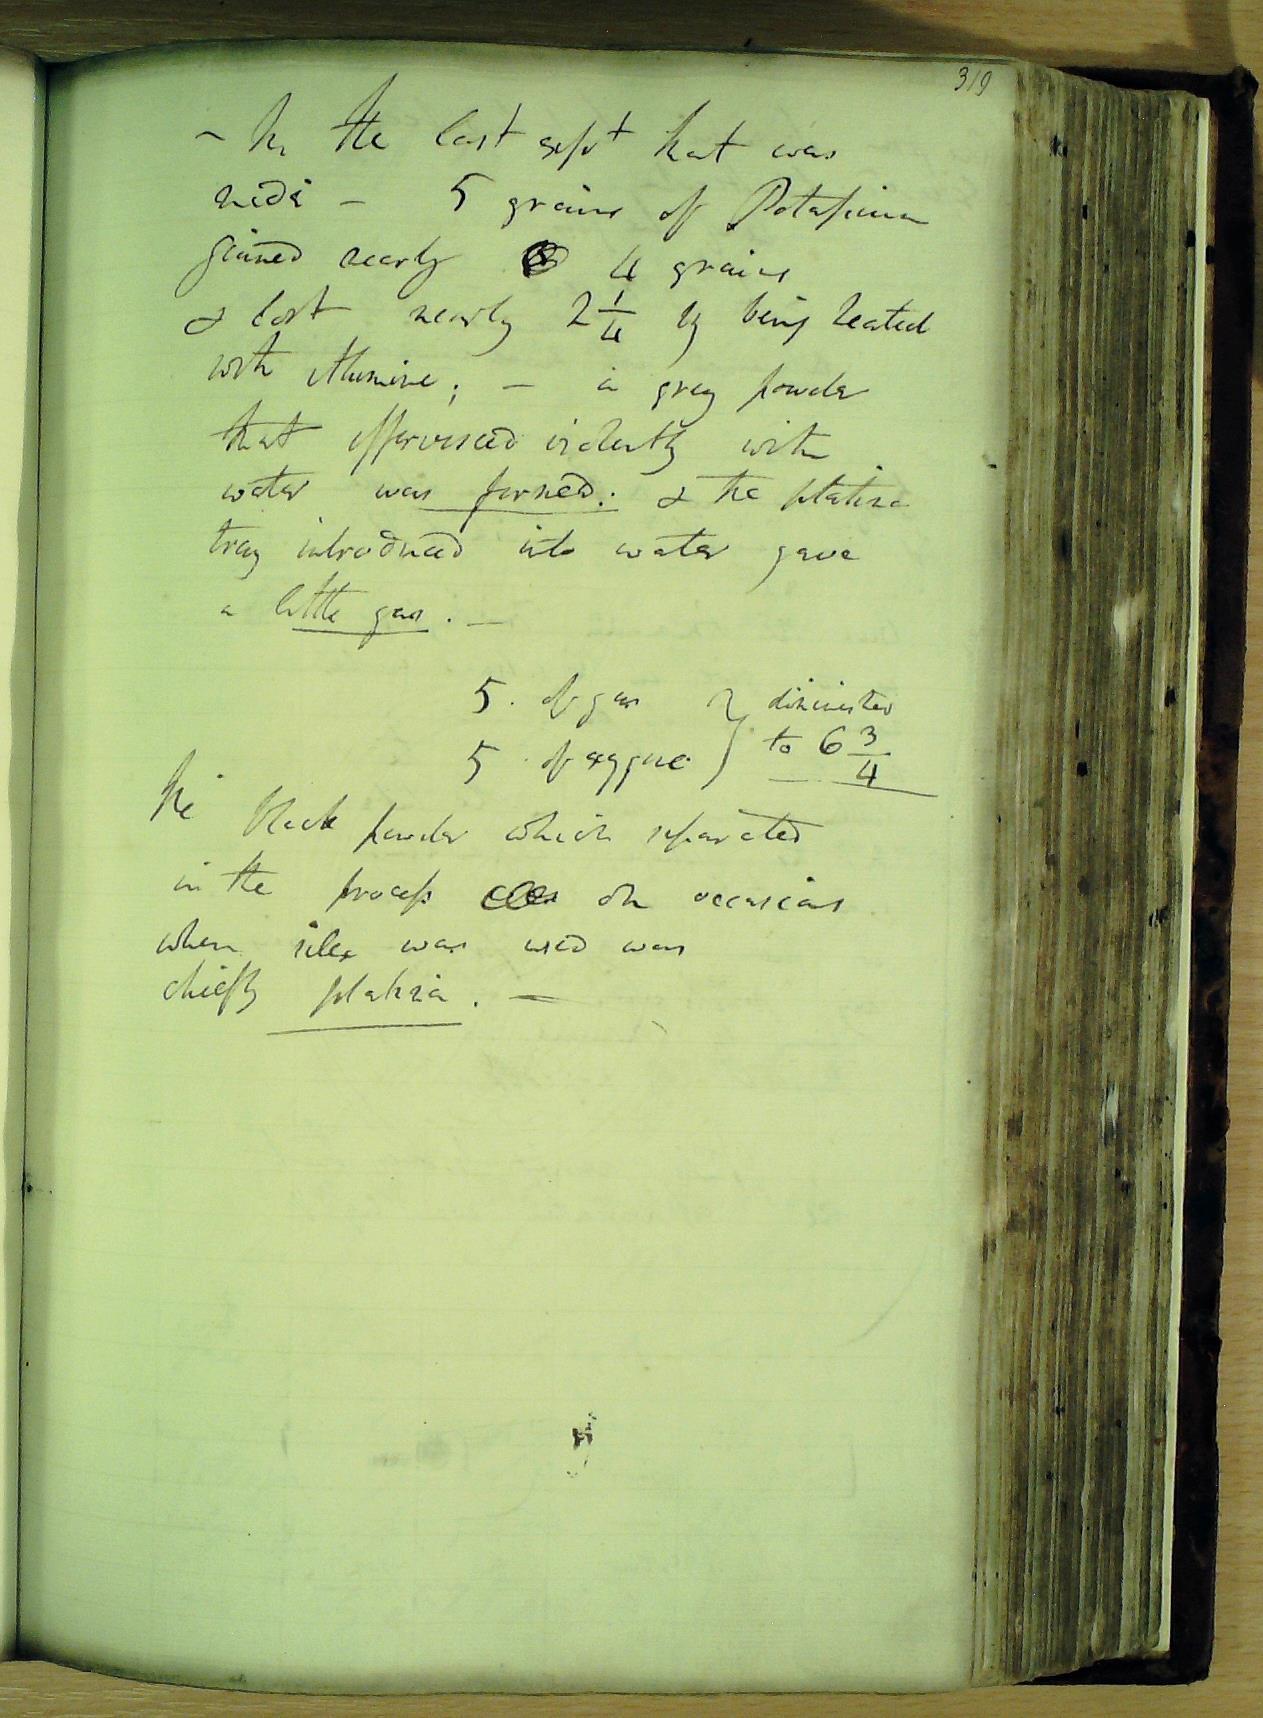 319
- In the last expt that was
made - 5 grains of Potassium
gained nearly 4 grains
& lost nearly 2 1/4 by being heated
with Alumine; - a grey powder
that effervesced violently with
water was formed: & the platina
tray introduced into water gave
a little gas. -
5. of gas } diminished
5 of oxygene } to 6 3/4
The black powder which separated
in the process on occasions
when silex was used was
chiefly platina. -